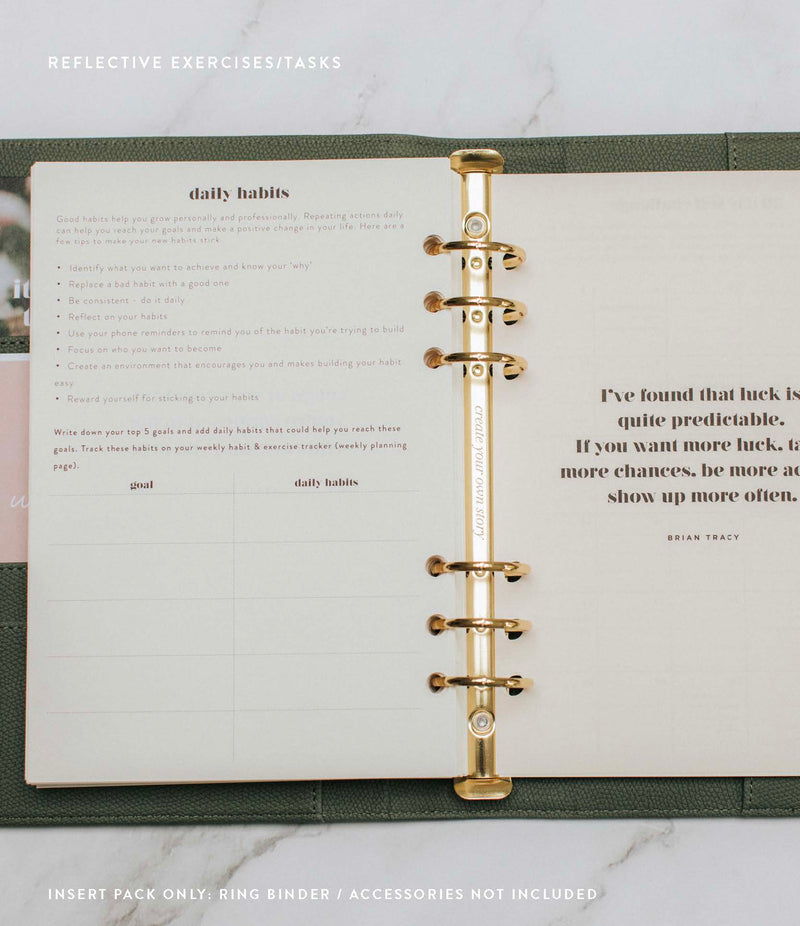 REFLECTIVE EXERCISES/TASKS
daily habits
Good habits help you grow personally and professionally. Repeating actions daily
can help you reach your goals and make a positive change in your life. Here are a
few tips to make your new habits stick
• Identify what you want to achieve and know your 'why'
• Replace a bad habit with a good one
• Be consistent - do it daily
• Reflect on your habits
• Use your phone reminders to remind you of the habit you're trying to build
• Focus on who you want to become
• Create an environment that encourages you and makes building your habit
easy
• Reward yourself for sticking to your habits
Write down your top 5 goals and add daily habits that could help you reach these
goals. Track these habits on your weekly habit & exercise tracker (weekly planning
page).
goal daily habits
create your own story
I've found that luck is
quite predictable.
If you want more luck, ta
more chances, be more ac
show up more often.
BRIAN TRACY
INSERT PACK ONLY: RING BINDER / ACCESSORIES NOT INCLUDED